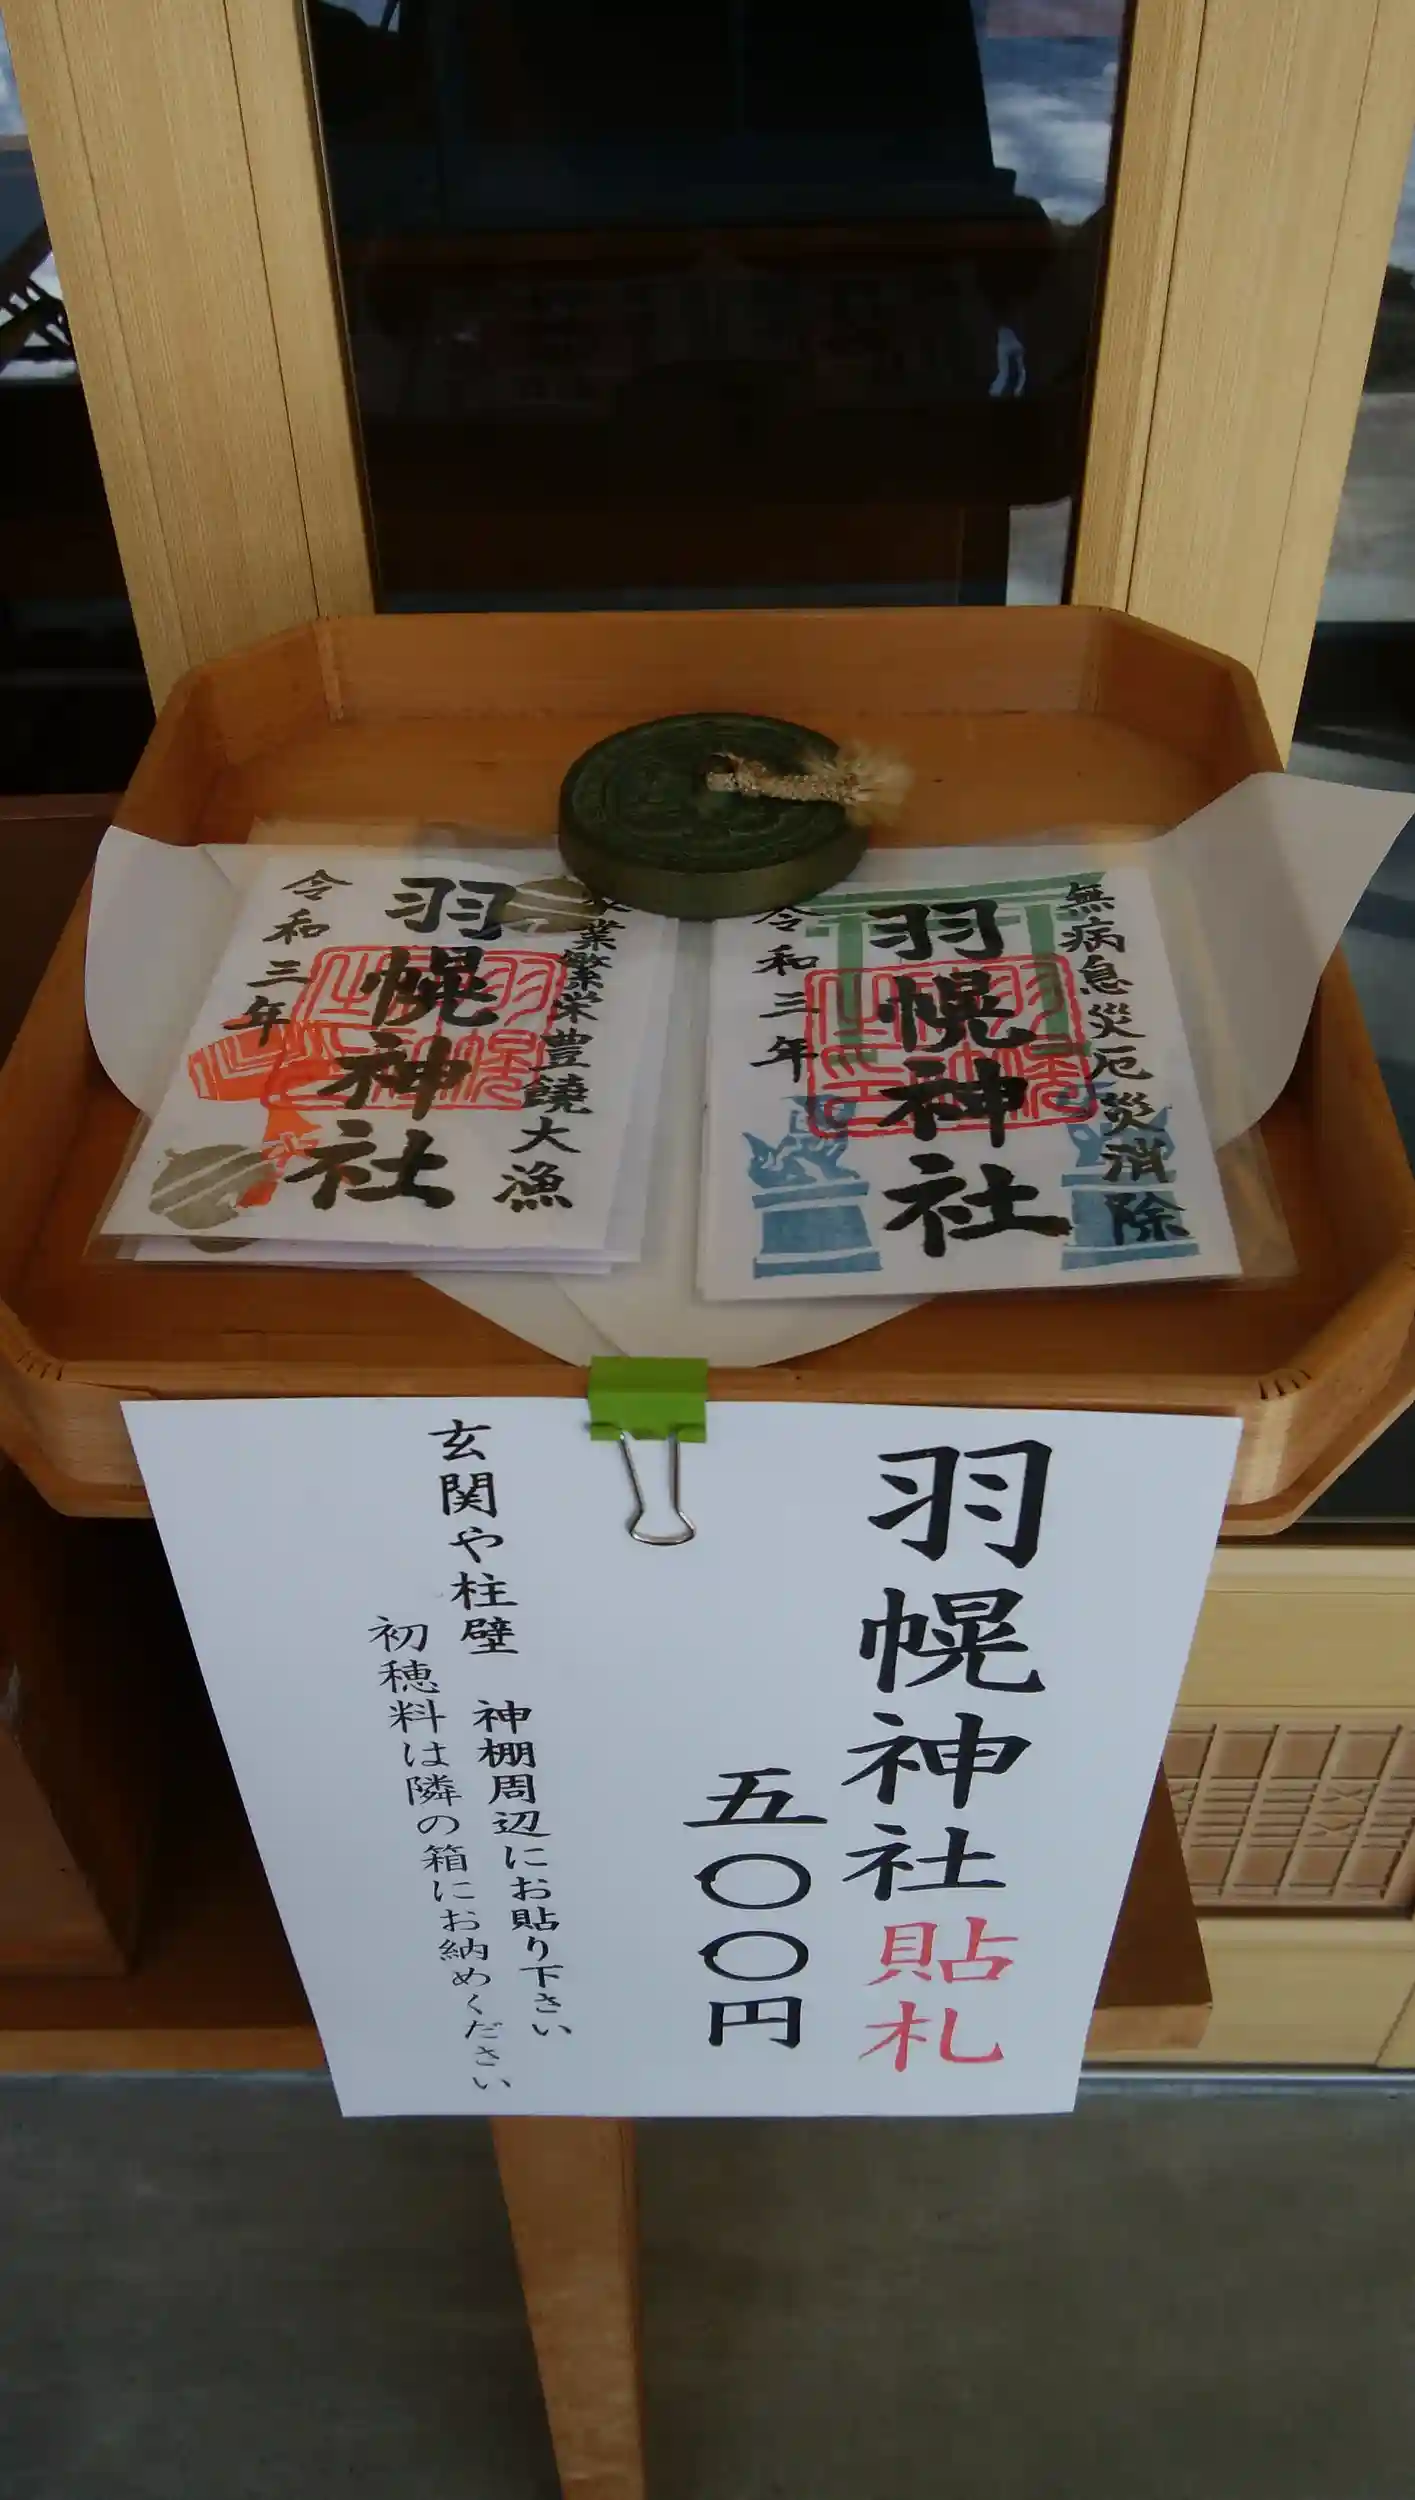 無病息災厄災消除
羽幌神社
令和三年
業繁栄豊饒大漁
羽幌神社
令和三年
羽幌神社貼札
五〇〇円
玄関や柱壁 神棚周辺にお貼り下さい
初穂料は隣の箱にお納めください